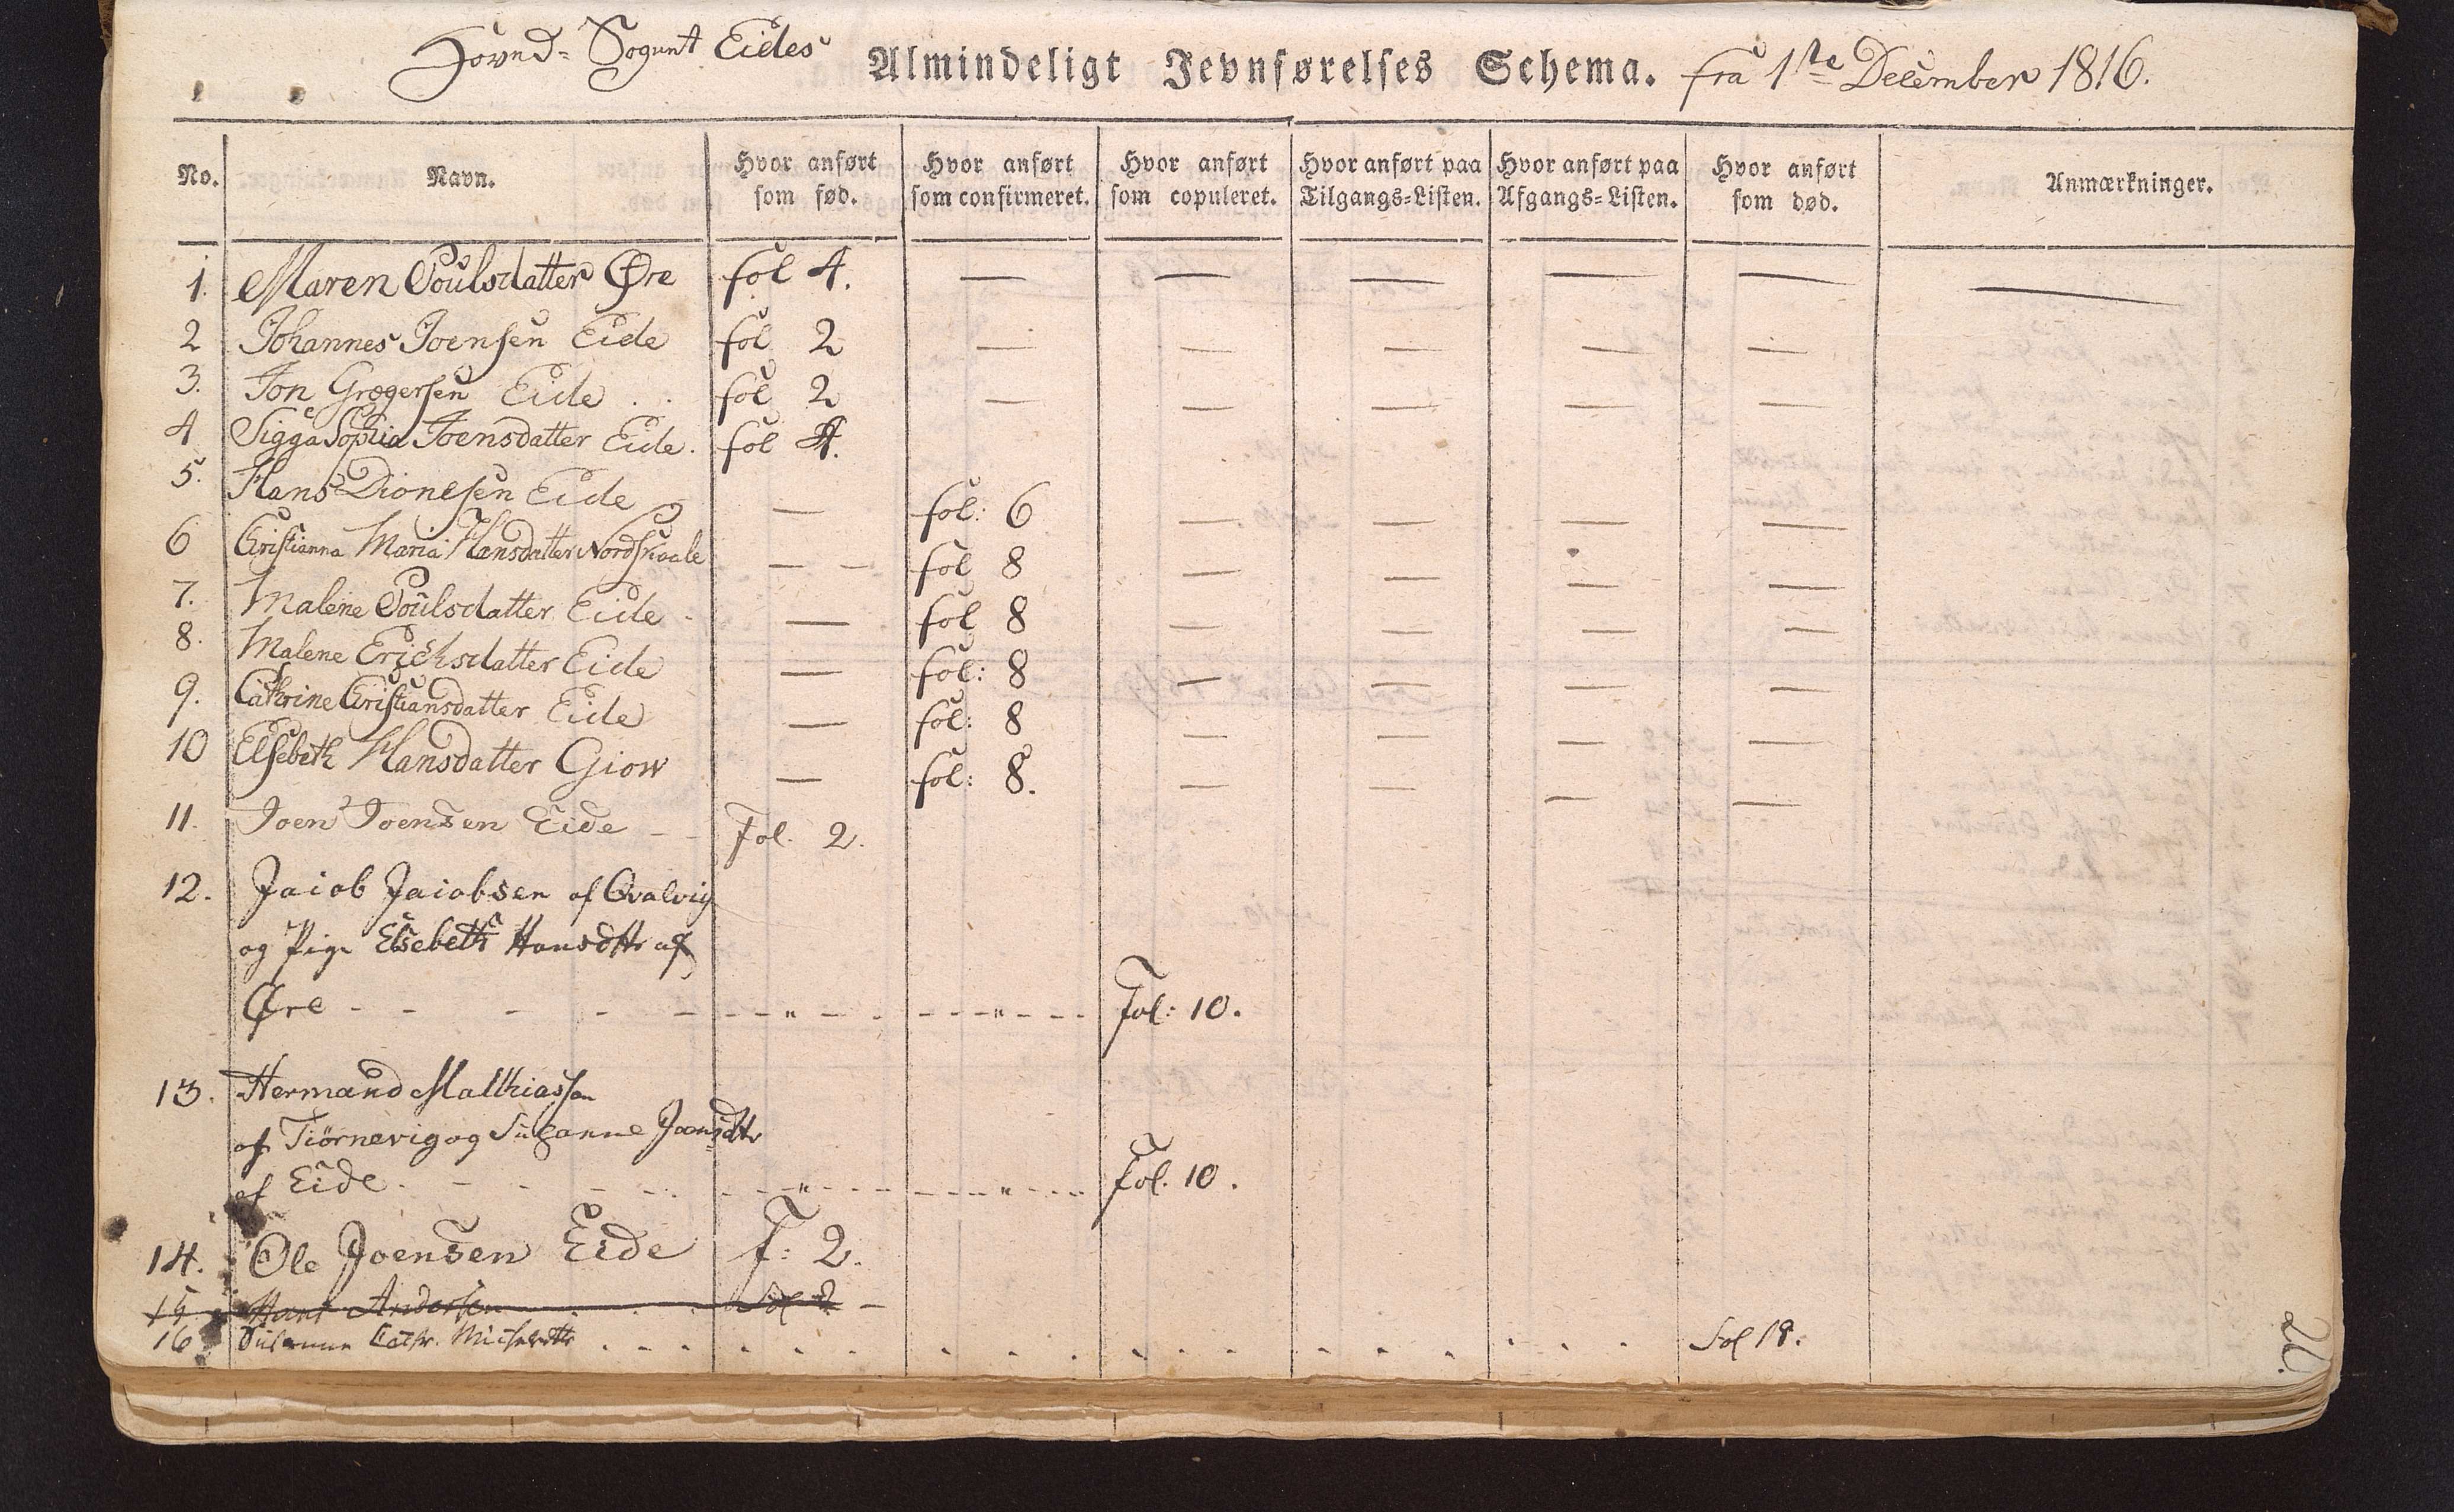 Hovned-Sognet Eides Almindeligt Jevnførelses Schema. fra 1ste December 1816.
No. Navn. Hvor anført som fød. Hvor anført som confirmeret. Hvor anført som copuleret. Hvor anført paa Tilgangs-Listen. Hvor anført paa Afgangs-Listen. Hvor anført som død. Anmærkninger.
1. Maren Poulsdatter Øre fol 4. — — — — — —
2 Johannes Joensen Eide fol 2 — — — — —
3. Jon Grægersen Eide . . fol 2 — — — — —
4 Sigga Sophia Joensdatter Eide. fol 4.
5. Hans Dionesen Eide — fol: 6 — — — —
6 Christianna Maria Hansdatter Nordskaale — — fol 8 — — — —
7. Malene Poulsdatter Eide — fol 8 — — — —
8. Malene Erichsdatter Eide — fol: 8 — — — —
9. Cathrine Christiansdatter Eide — fol: 8 — — — —
10 Elsebeth Hansdatter Giow — fol: 8. — — — —
11. Joen Joensen Eide — — Fol. 2.
12. Jacob Jacobsen af Qvalvig
og Pige Elsebeth Hansdttr af
Øre - - - - - - - " - - - - - " - - - Fol: 10.
13. Hermand Matthiassen
af Tiørnevig og Susanne Joensdttr
af Eide. - - - - - - - " - - - - - " - - - Fol. 10.
14. Ole Joensen Eide F: 2.
15 Hans Andersen . . . Fol 2 —
16 Susanne Cathr. . . . . . . . . . . . . . . . . . . . Fol 18.
26.